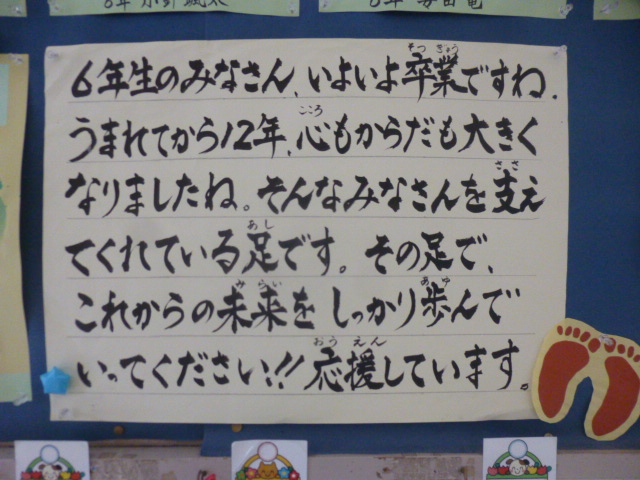 6年生のみなさん、いよいよ卒業ですね。
うまれてから12年、心もからだも大きく
なりましたね。そんなみなさんを支え
てくれている足です。その足で、
これからの未来を しっかり歩んで
いってください!! 応援しています。